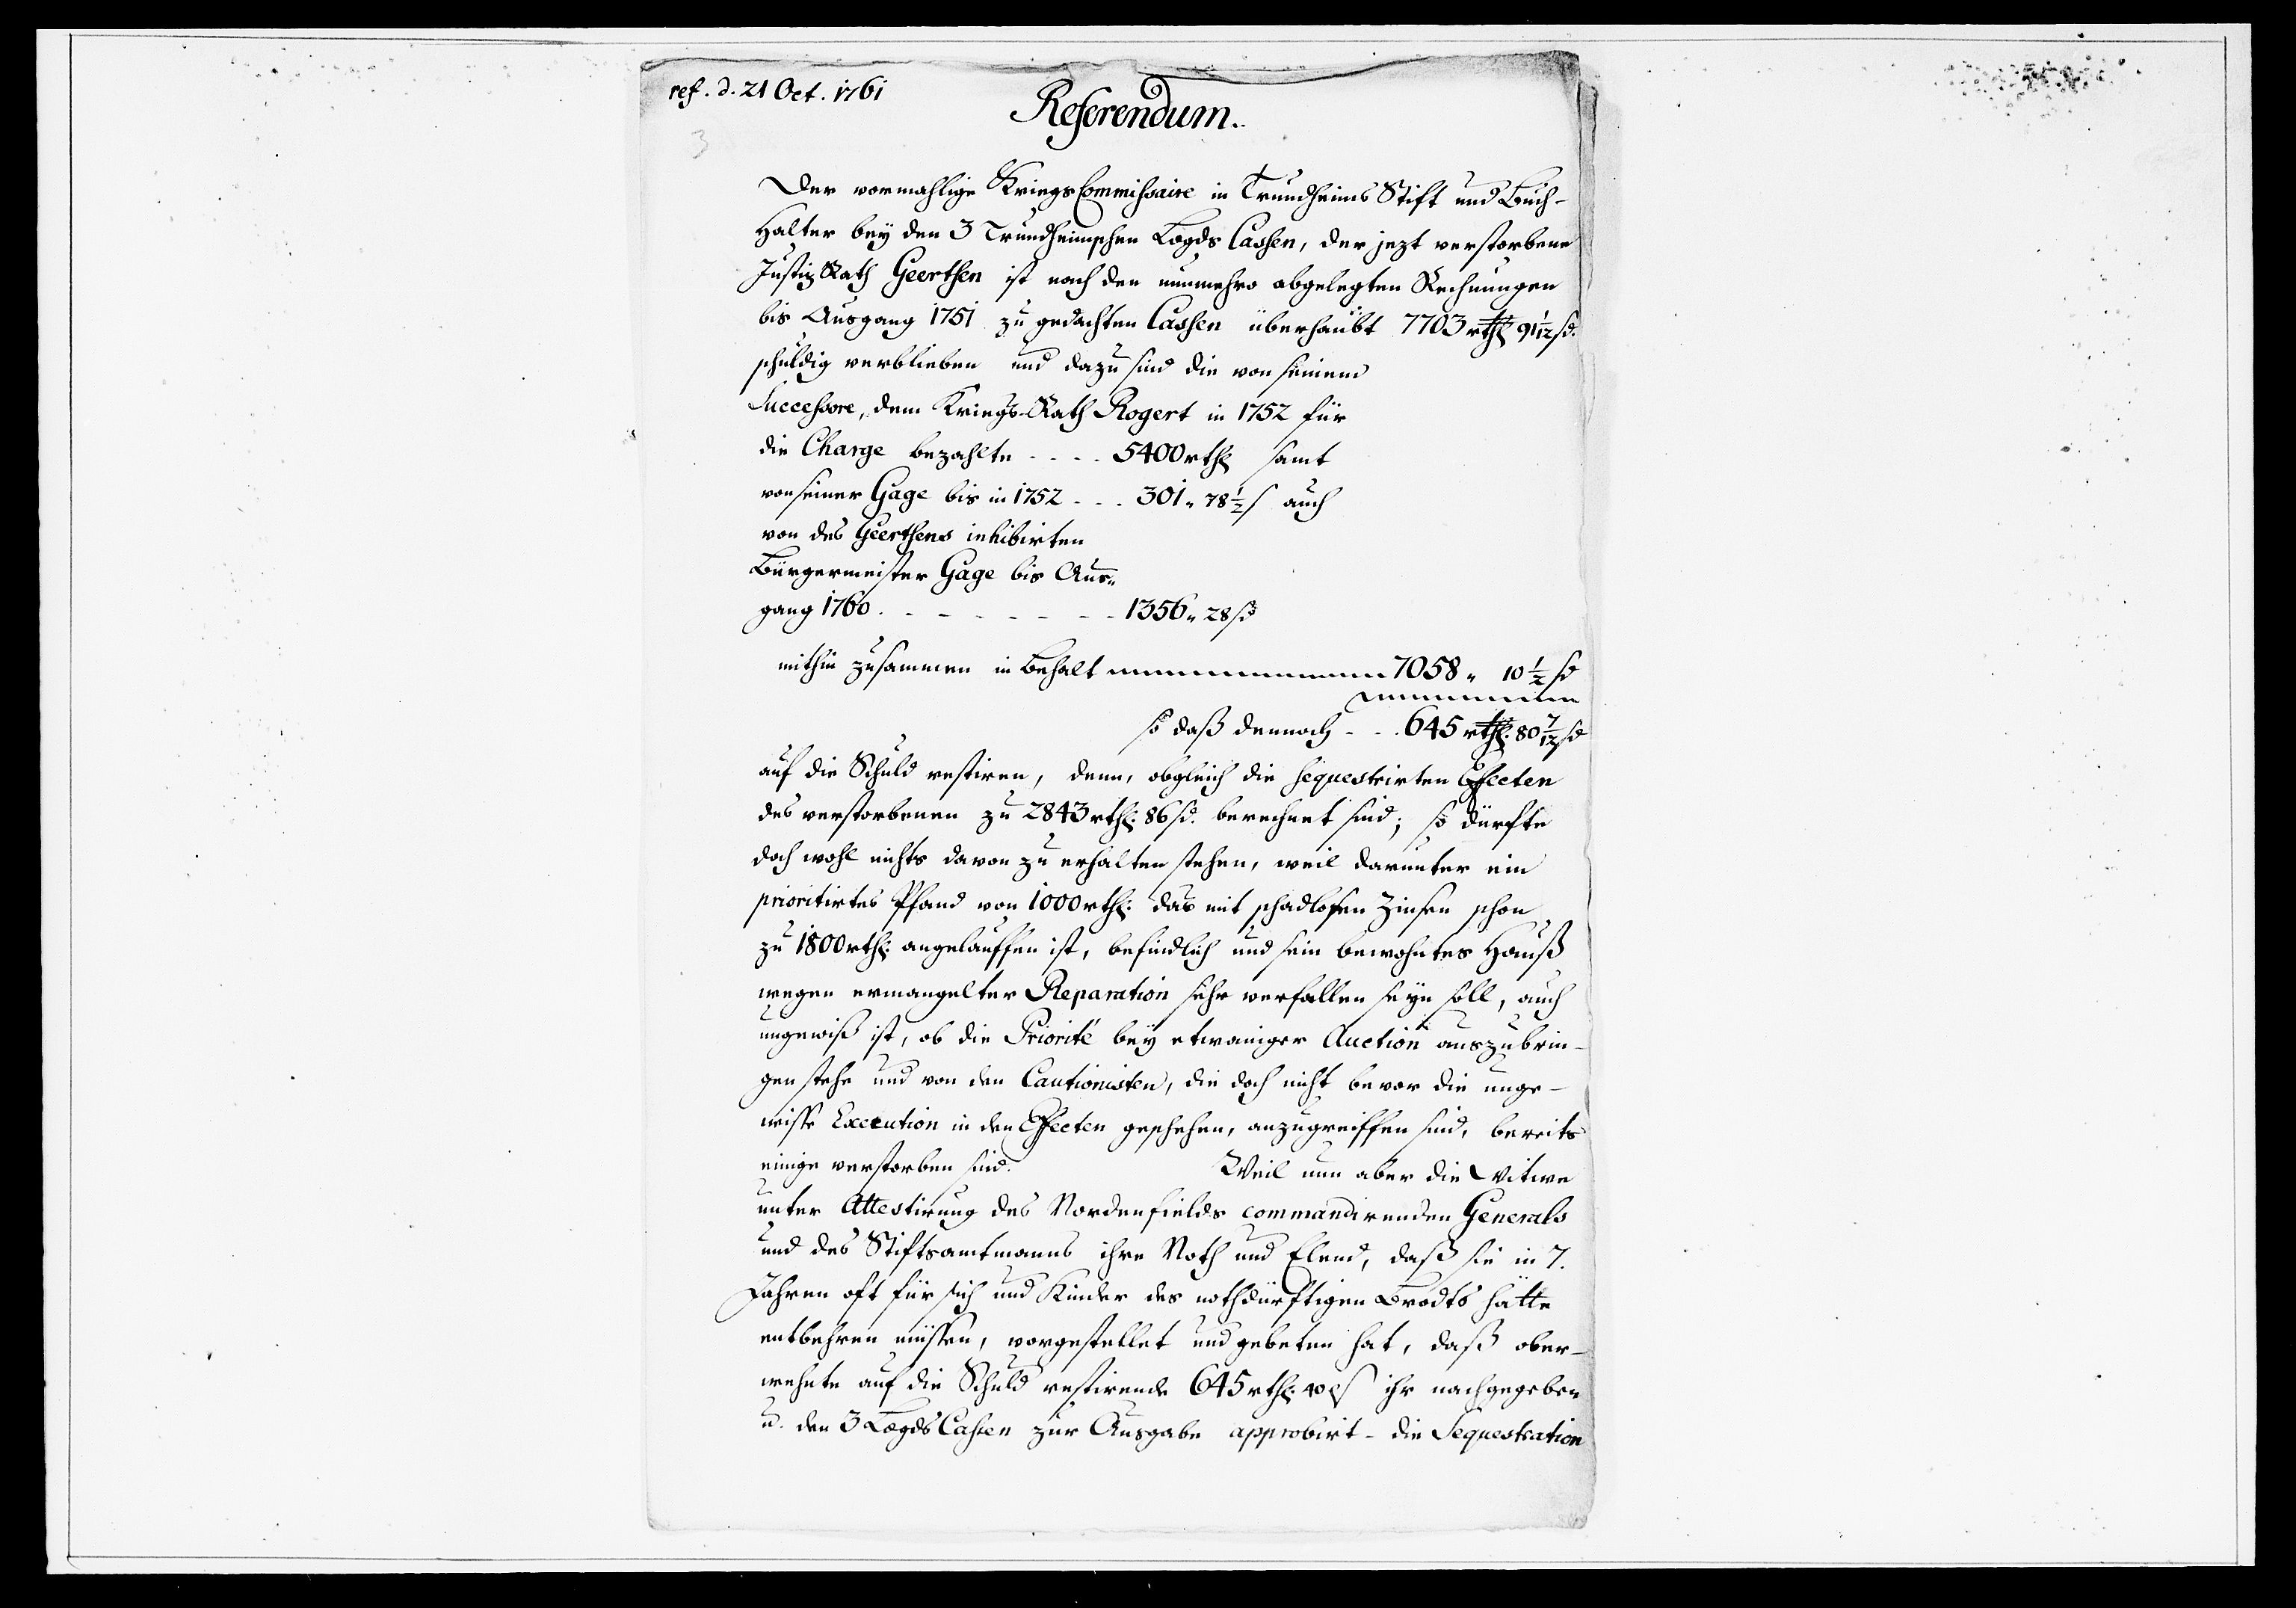 ref. d. 21 Oct. 1761
Referendum.
3
Der vormahlige KriegsCommissaire in Trundheims Stift und Buch-
Halter bey den 3 Trundheimschen Lægds Cassen, der jezt verstorbene
Justiz Rath Geerthsen ist nach den nunmehro abgelegten Rechnungen
bis Ausgang 1751 zu gedachten Cassen überhaubt 7703 rthl 91 1/12 ſd.
schuldig verblieben und dazu sind die von seinem
Successore, dem Kriegs-Rath Rogert in 1752 für
die Charge bezahlte - - - - 5400 rthl samt
von seiner Gage bis in 1752 - - - 301 " 78 1/2 ſ auch
von des Geerthsens inhibirten
Bürgermeister Gage bis Aus"
gang 1760 - - - - - - - 1356 " 28 ſd
mithin zusammen in Behalt 7058 " 10 1/2 ſd
so daß dennoch - - - 645 rthl. 80 7/12 ſd
auf die Schuld restiren, denn, obgleich die sequestrirten Effecten
des verstorbenen zu 2843 rthl. 86 ſd. berechnet sind; so dürfte
doch wohl nichts davon zu erhalten stehen, weil darunter ein
prioritirtes Pfand von 1000 rthl. das mit schadlosen Zinsen schon
zu 1800 rthl. angelauffen ist, befindlich und sein bewohntes Hauß
wegen ermangelter Reparation sehr verfallen seyn soll, auch
ungewiß ist, ob die Priorité bey etwaniger Auction auszubrin-
gen stehe und von den Cautionisten, die doch nicht bevor die unge-
wisse Execution in den Effecten geschehen, anzugreiffen sind, bereits
einige verstorben sind. Weil nun aber die Witwe
unter Attestirung des Nordenfields commandirenden Generals
und des Stiftsamtmanns ihre Noth und Elend, daß sie in 7.
Jahren oft für sich und Kinder des nothdürftigen Brodts hätte
entbehren müssen, vorgestellet und gebeten hat, daß ober-
wehnte auf die Schuld restirende 645 rthl. ihr nachgegeben
u. den 3 Lægds Cassen zur Ausgabe approbirt - die Sequestration